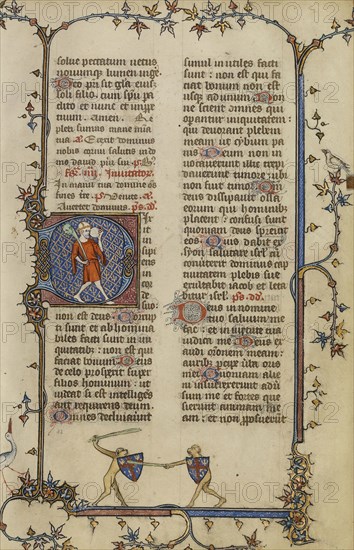 solue peccatum uetus
nouumque lumen inge
Deo patri sit gloria eius
soli filio. cum spiritu pa
clito et nunc et in per
tuum. amen.
Repleti sumus mane mia
tua
nobis erimi saluato in do
mo dauid pueri sui
In manu tua domine os
fines terre
Auertet dominus
non est deus Corrup
ti sunt et abhomina
biles facti sunt in ini
quitatibus: non est qui
faciat bonum Deus
de celo prospexit super
filios hominum: ut
uideat si est intelliges
aut requirens deum.
Omnes declinauerunt
simul inutiles facti
sunt: non est qui fa
ciat bonum non est
usque ad unum Non
ne scient omnes qui
operantur iniquitatem:
qui deuorant plebem
meam ut cybum panis
Deum non in
uocauerunt illic trep
idauerunt timore: ubi
non fuit timor
Deus dissipauit ossa
eorum qui hominibus
placent: confusi sunt
quoniam deus spreuit
eos Quis dabit ex
syon salutare israel
conuerterit dominus cap
tiuitatem plebis sue
exultabit iacob et le
tabitur israel
Deus in nomine
tuo saluum me
fac: et in uirtute tua
iudica me Deus ex
audi orationem meam:
auribus percipe uerba oris
mei Quoniam alie
ni insurrexerunt aduer
sum me et fortes que
sierunt animam me
am: et non proposuerunt